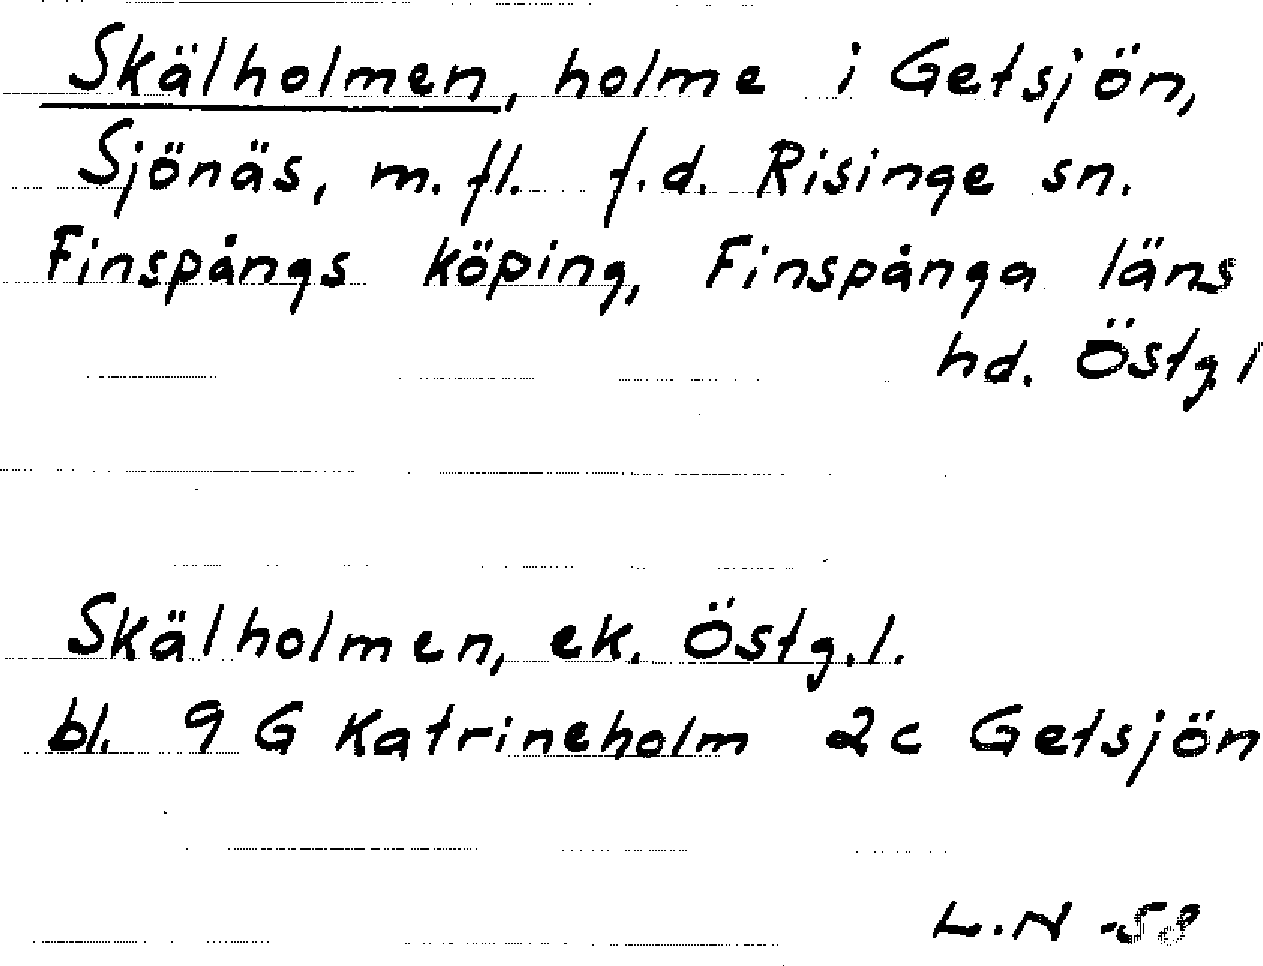 Skälholmen, holme i Getsjön,
Sjönäs, m. fl. f.d. Risinge sn.
Finspångs köping, Finspånga läns
hd. Östg l
Skälholmen, ek. Östg.l.
bl. 9 G Katrineholm 2c Getsjön
L.N -58